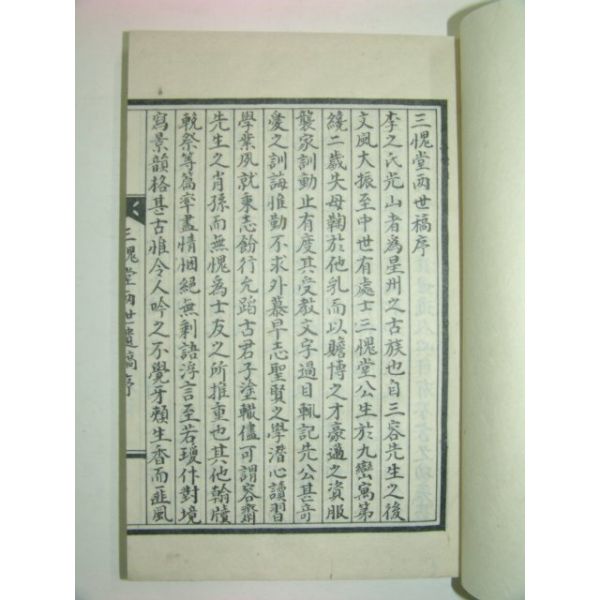 三愧堂兩世稿序
李之氏光山者為星州之古族也自三容先生之後
文風大振至中世有處士三愧堂公生於九巒寓第
纔二歲失母鞠於他乳而以贍博之才豪邁之資服
襲家訓動止有度其受教文字過目輒記先公甚奇
愛之訓誨惟勤不求外慕早志聖賢之學潛心讀習
學業夙就秉志飭行允蹈古君子塗轍儘可謂容齋
先生之肖孫而無愧為士友之所推重也其他翰牘
輓祭等篇率盡情悃絕無剩語浮言至若瓊什對境
寫景韻格甚古惟令人吟之不覺牙頰生香而匪風
三愧堂兩世遺稿序